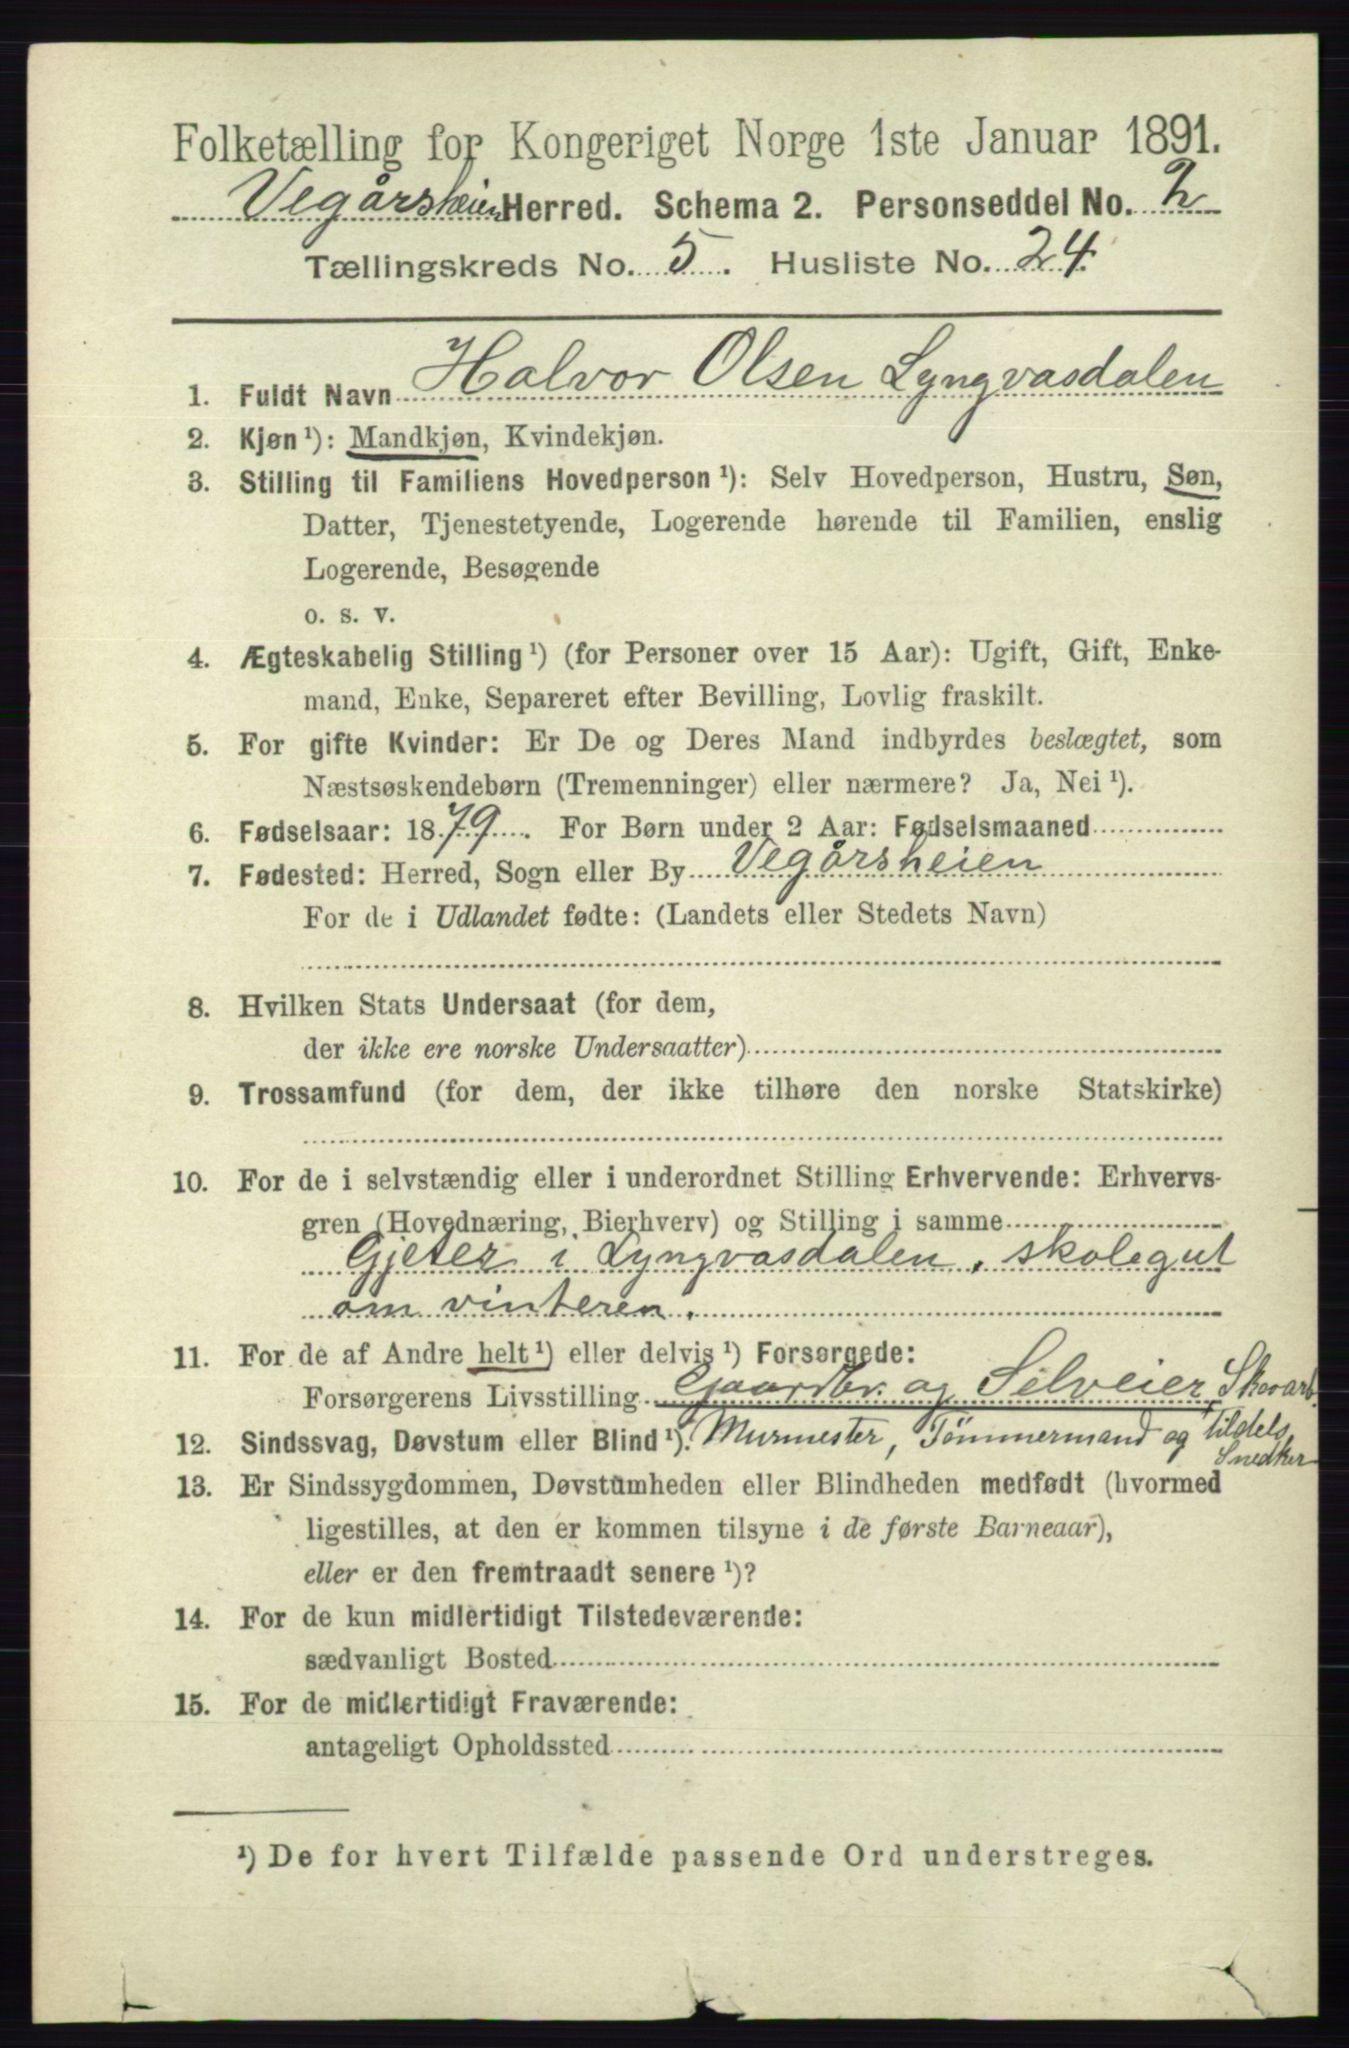 Folketælling for Kongeriget Norge 1ste Januar 1891.
Vegårsheien Herred. Schema 2. Personseddel No. 2
Tællingskreds No. 5. Husliste No. 24.
1. Fuldt Navn Halvor Olsen Lyngvasdalen
2. Kjøn ¹): Mandkjøn, Kvindekjøn.
3. Stilling til Familiens Hovedperson ¹): Selv Hovedperson, Hustru, Søn,
Datter, Tjenestetyende, Logerende hørende til Familien, enslig
Logerende, Besøgende
o. s. v.
4. Ægteskabelig Stilling ¹) (for Personer over 15 Aar): Ugift, Gift, Enke-
mand, Enke, Separeret efter Bevilling, Lovlig fraskilt.
5. For gifte Kvinder: Er De og Deres Mand indbyrdes beslægtet, som
Næstsøskendebørn (Tremenninger) eller nærmere? Ja, Nei ¹).
6. Fødselsaar: 1879. For Børn under 2 Aar: Fødselsmaaned
7. Fødested: Herred, Sogn eller By Vegårsheien
For de i Udlandet fødte: (Landets eller Stedets Navn)
8. Hvilken Stats Undersaat (for dem,
der ikke ere norske Undersaatter)
9. Trossamfund (for dem, der ikke tilhøre den norske Statskirke)
10. For de i selvstændig eller i underordnet Stilling Erhvervende: Erhvervs-
gren (Hovednæring, Bierhverv) og Stilling i samme
Gjeter i Lyngvasdalen, skolegut
om vinteren.
11. For de af Andre helt ¹) eller delvis ¹) Forsørgede:
Forsørgerens Livsstilling Gaardbr. og Selveier, Skovarb.
12. Sindssvag, Døvstum eller Blind ¹). Murmester, Tömmermand og tildels
Snedker
13. Er Sindssygdommen, Døvstumheden eller Blindheden medfødt (hvormed
ligestilles, at den er kommen tilsyne i de første Barneaar),
eller er den fremtraadt senere ¹)?
14. For de kun midlertidigt Tilstedeværende:
sædvanligt Bosted
15. For de midlertidigt Fraværende:
antageligt Opholdssted
¹) De for hvert Tilfælde passende Ord understreges.